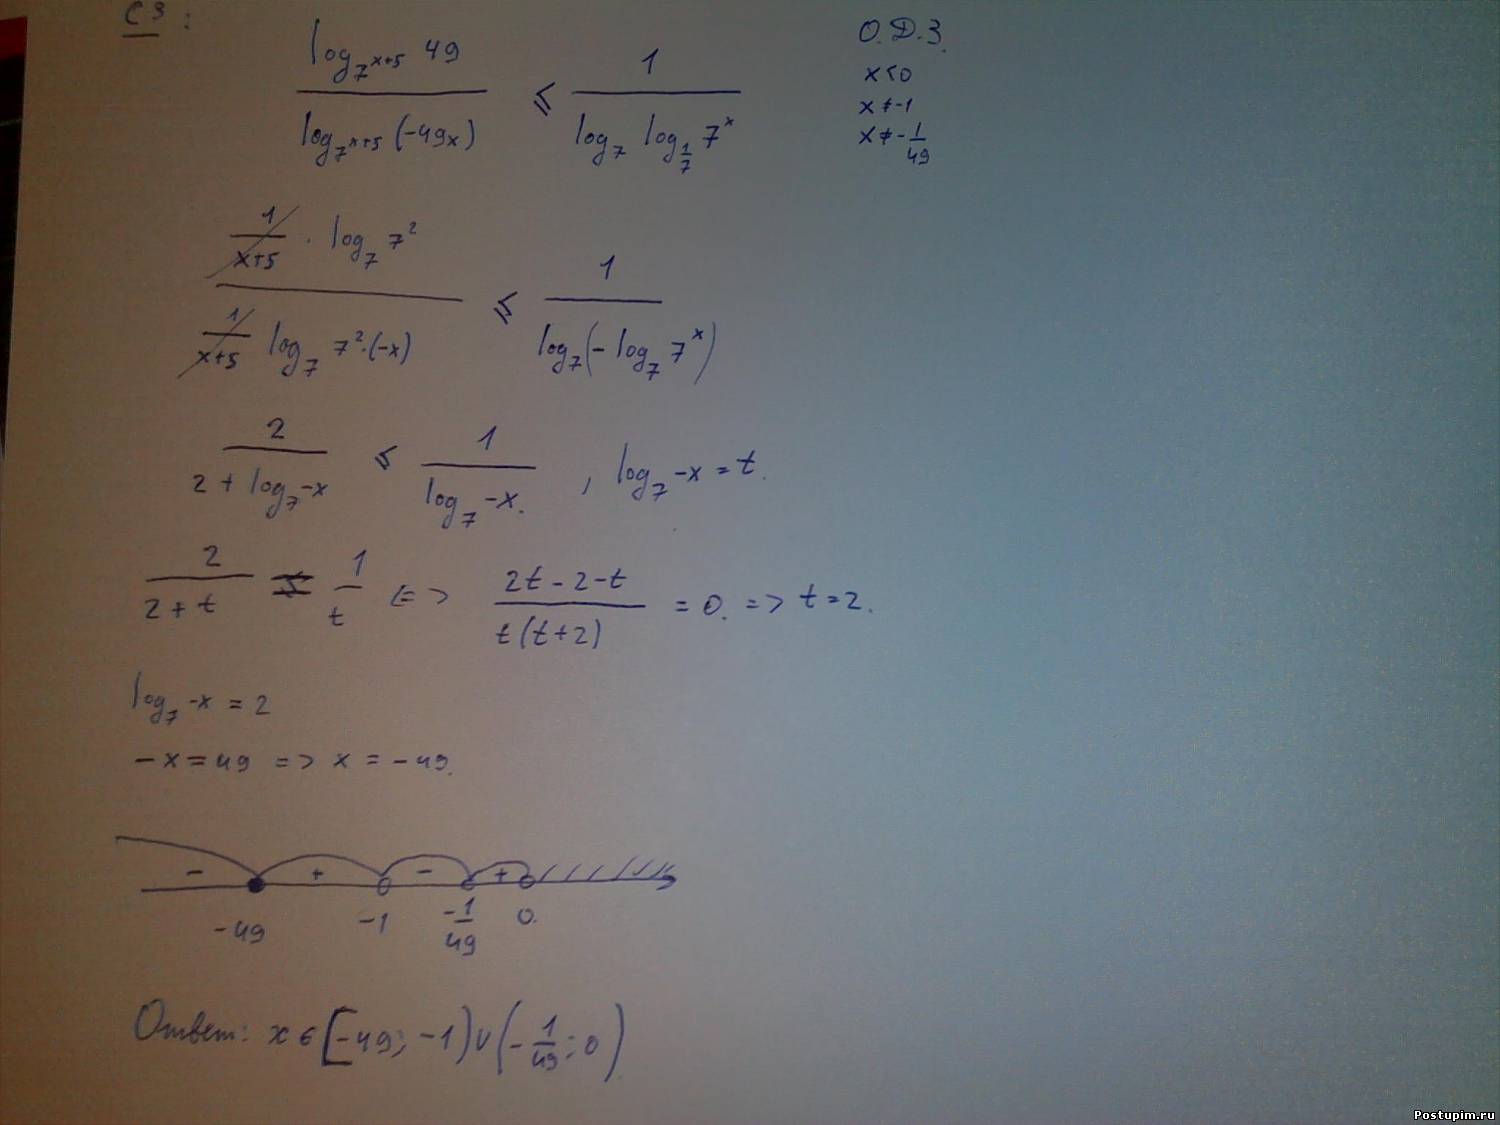 C3:
log_{7^{x+5}} 49 / log_{7^{x+5}} (-49x) ≤ 1 / log_7 log_{1/7} 7^x
О.Д.З.
x<0
x≠-1
x≠-1/49
1/(x+5) · log_7 7^2 / 1/(x+5) log_7 7^2·(-x) ≤ 1 / log_7(-log_7 7^x)
2 / 2 + log_7 -x ≤ 1 / log_7 -x. , log_7 -x = t.
2 / 2+t = 1 / t <=> 2t-2-t / t(t+2) = 0. => t=2.
log_7 -x = 2
-x=49 => x = -49.
- + - +
-49 -1 -1/49 0.
Ответ: x∈[-49; -1)∪(-1/49; 0)
Postupim.ru